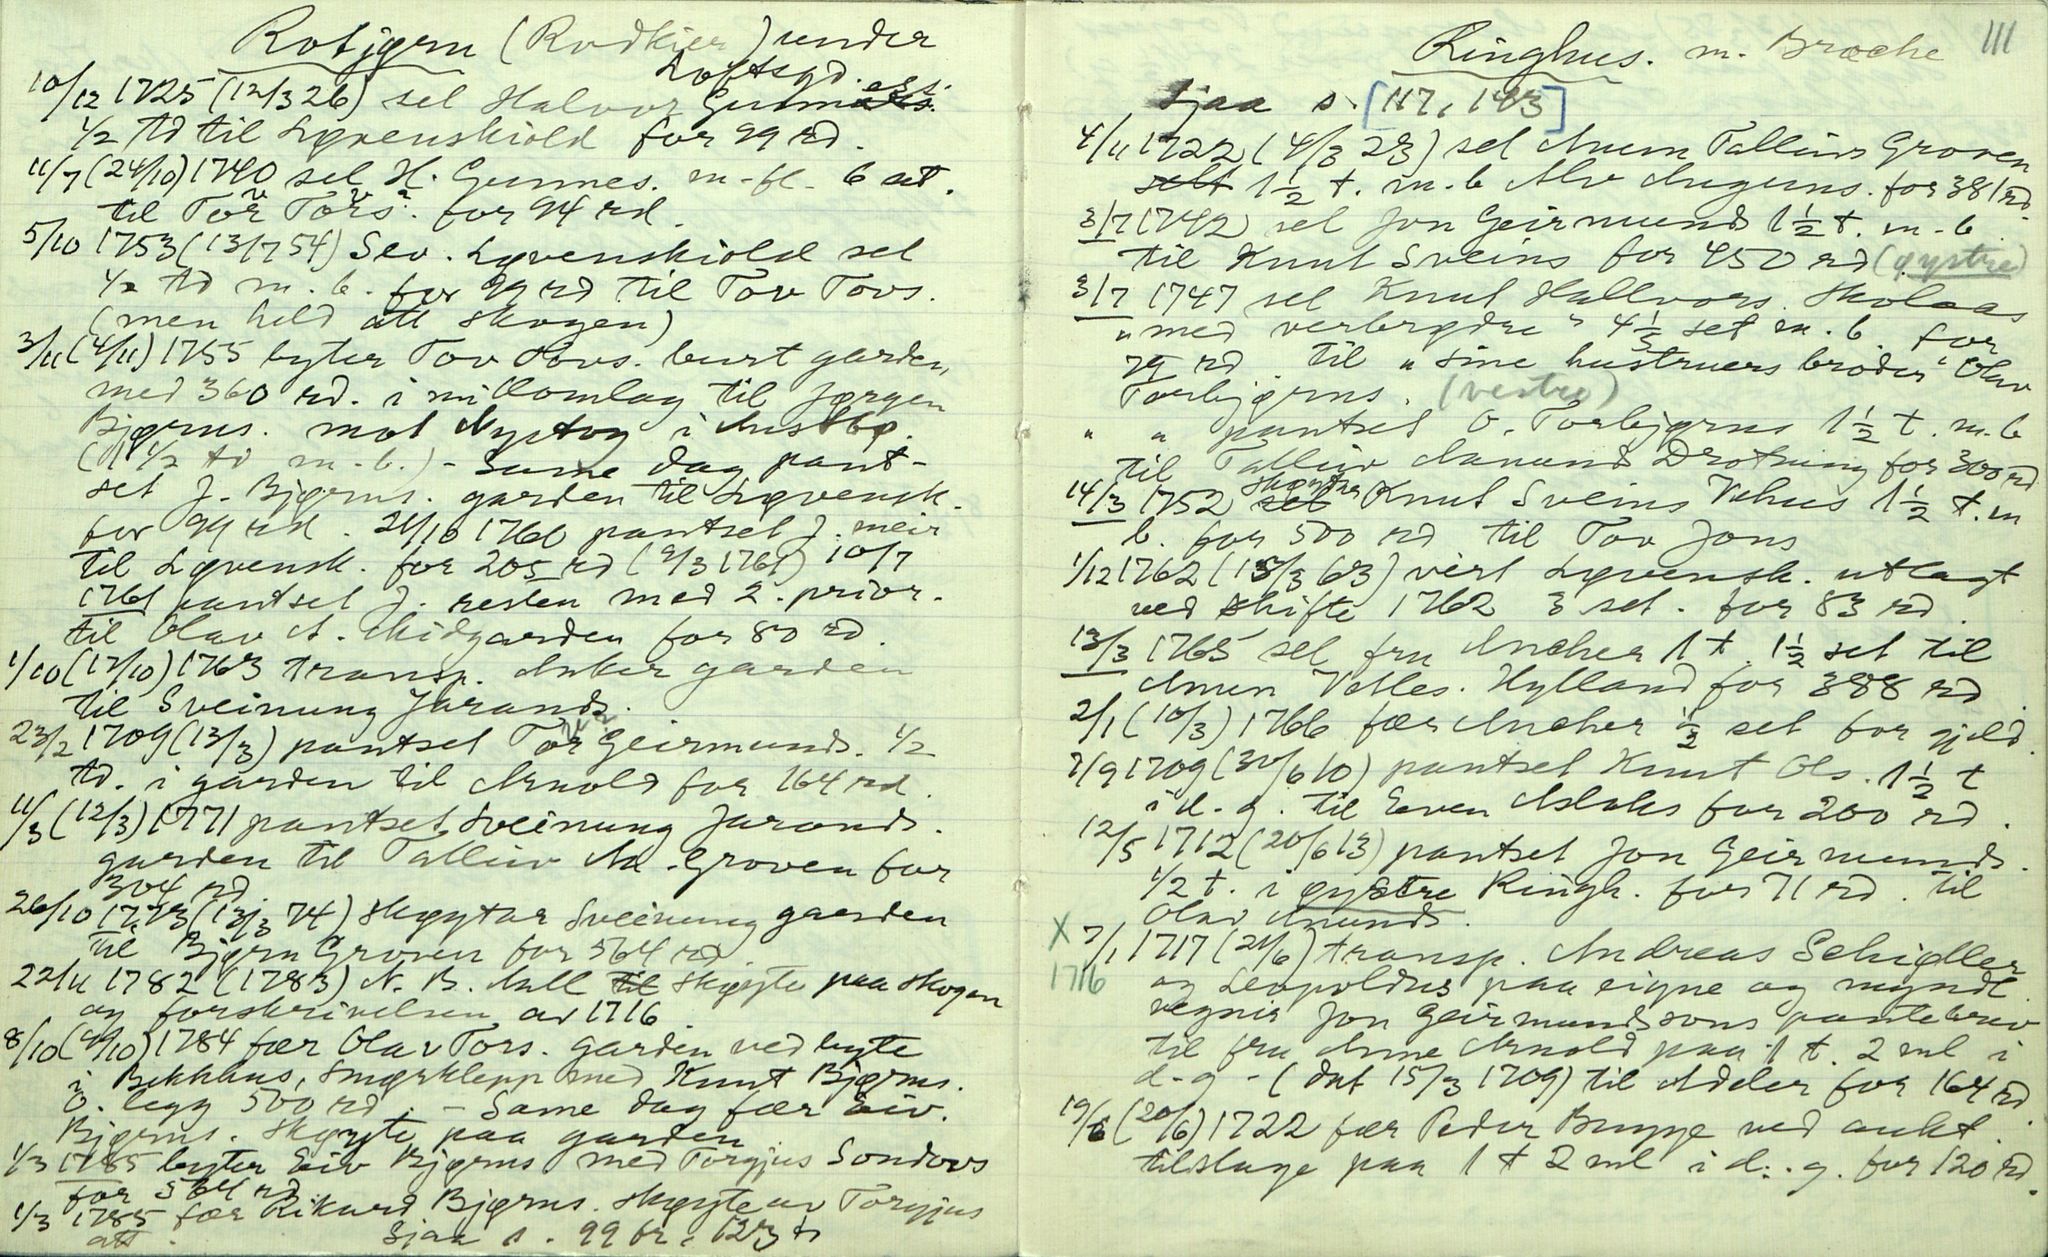 Rotjørn (Rødkier) under
Loftsgd.
10/12 1725 (12/3 26) sel Halvor Gunnars. ess.
1/2 td til Løvenskiold for 99 rd.
11/7 (24/10) 1740 sel H. Gunnes. m-fl. 6 set.
til Tor Tors. for 94 rd.
5/10 1753 (13/7 54) Sev. Løvenskiold sel
1/2 td m. b. for 99 rd til Tov Tovs.
(men held att skogen)
3/11 (4/11) 1755 byter Tov Tovs. burt garden,
med 360 rd. i millomlag til Jørgen
Bjørns. mot Nystog i Austbø.
(1 1/2 td m-b.) - Same dag pant-
set J. Bjørns. garden til Løvensk.
for 99 rd. 21/10 1760 pantset J. meir
til Løvensk. for 205 rd (9/3 1761) 10/7
1761 pantset J. resten med 2. prior.
til Olav A. Midgarden for 80 rd.
1/10 (17/10) 1763 transp. Anker garden
til Sveinung Jarands.
23/2 1709 (13/3) pantset Tor Geirmunds. 1/2
td. i garden til Arnold for 164 rd.
11/3 (12/3) 1771 pantset Sveinung Jarands.
garden til Talleiv Aa. Groven for
304 rd.
26/10 1773 (13/3 74) skøytar Sveinung garden
til Bjørn Groven for 564 rd.
22/11 1782 (1783) N. B. Aall til skøyte paa skogen
og forskrivelsen av 1716.
8/10 (9/10) 1784 fær Olav Tors. garden ved byte
i Bekkhus, Smørklepp med Knut Bjørns.
O. legg 500 rd. - Same dag fær Eiv.
Bjørns. skøyte paa garden
1/3 1785 byter Eiv Bjørns med Torgjus Sondovs
for 564 rd.
1/3 1785 fær Rikard Bjørns. skøyte av Torgjus
att. Sjaa s. 99 br. 123 b
111
Ringhus. m. Bræche
Sjaa s. [117, 143]
4/11 1722 (4/3 23) sel Aanem Talleivs Groven
selt 1 1/2 t. m. b Alv Auguns. for 381 rd.
3/7 1742 sel Jon Geirmunds 1 1/2 t. m-b.
til Knut Sveins for 450 rd (øystre)
3/7 1747 sel Knut Hallvors. Skolaas
"med verbrødre" 4 1/2 set m. b. for
79 rd. til "sine hustruers broder" Olav
Torbjørns. (vestre)
" " pantset O. Torbjørns 1 1/2 t. m. b
til Talleiv Aanunds Drotning for 300 rd
14/3 1752 sel skøyter Knut Sveins Vehus 1 1/2 t. m
b. for 500 rd til Tov Jons
1/12 1762 (15/3 63) vert Løvensk. utlagt
ved skifte 1762 3 set. for 83 rd.
13/3 1765 sel fru Ancher 1 t. 1 1/2 set til
Amun Valles. Hylland for 388 rd
2/1 (10/3) 1766 fær Ancher 1/2 set for gjeld.
7/9 1709 (30/6 10) pantset Knut Ols. 1 1/2 t
i d. g. til Even Aslaks for 200 rd.
12/5 1712 (20/6 13) pantset Jon Geirmunds.
1/2 t. i øystre Ringh. for 71 rd. til
Olav Amunds.
X 7/1 1717 (21/6) transp. Andreas Schiøller
1716 og Leopoldus paa eigne og myndl.
vegner Jon Geirmundssons pantebrev
til fru Anne Arnold paa 1 t. 2 ml i
d-g - (dat 15/3 1709) til Adeler for 164 rd.
19/6 (20/6) 1722 fær Peder Bugge ved aukt.
tilslage paa 1 t 2 ml i d. g. for 120 rd.